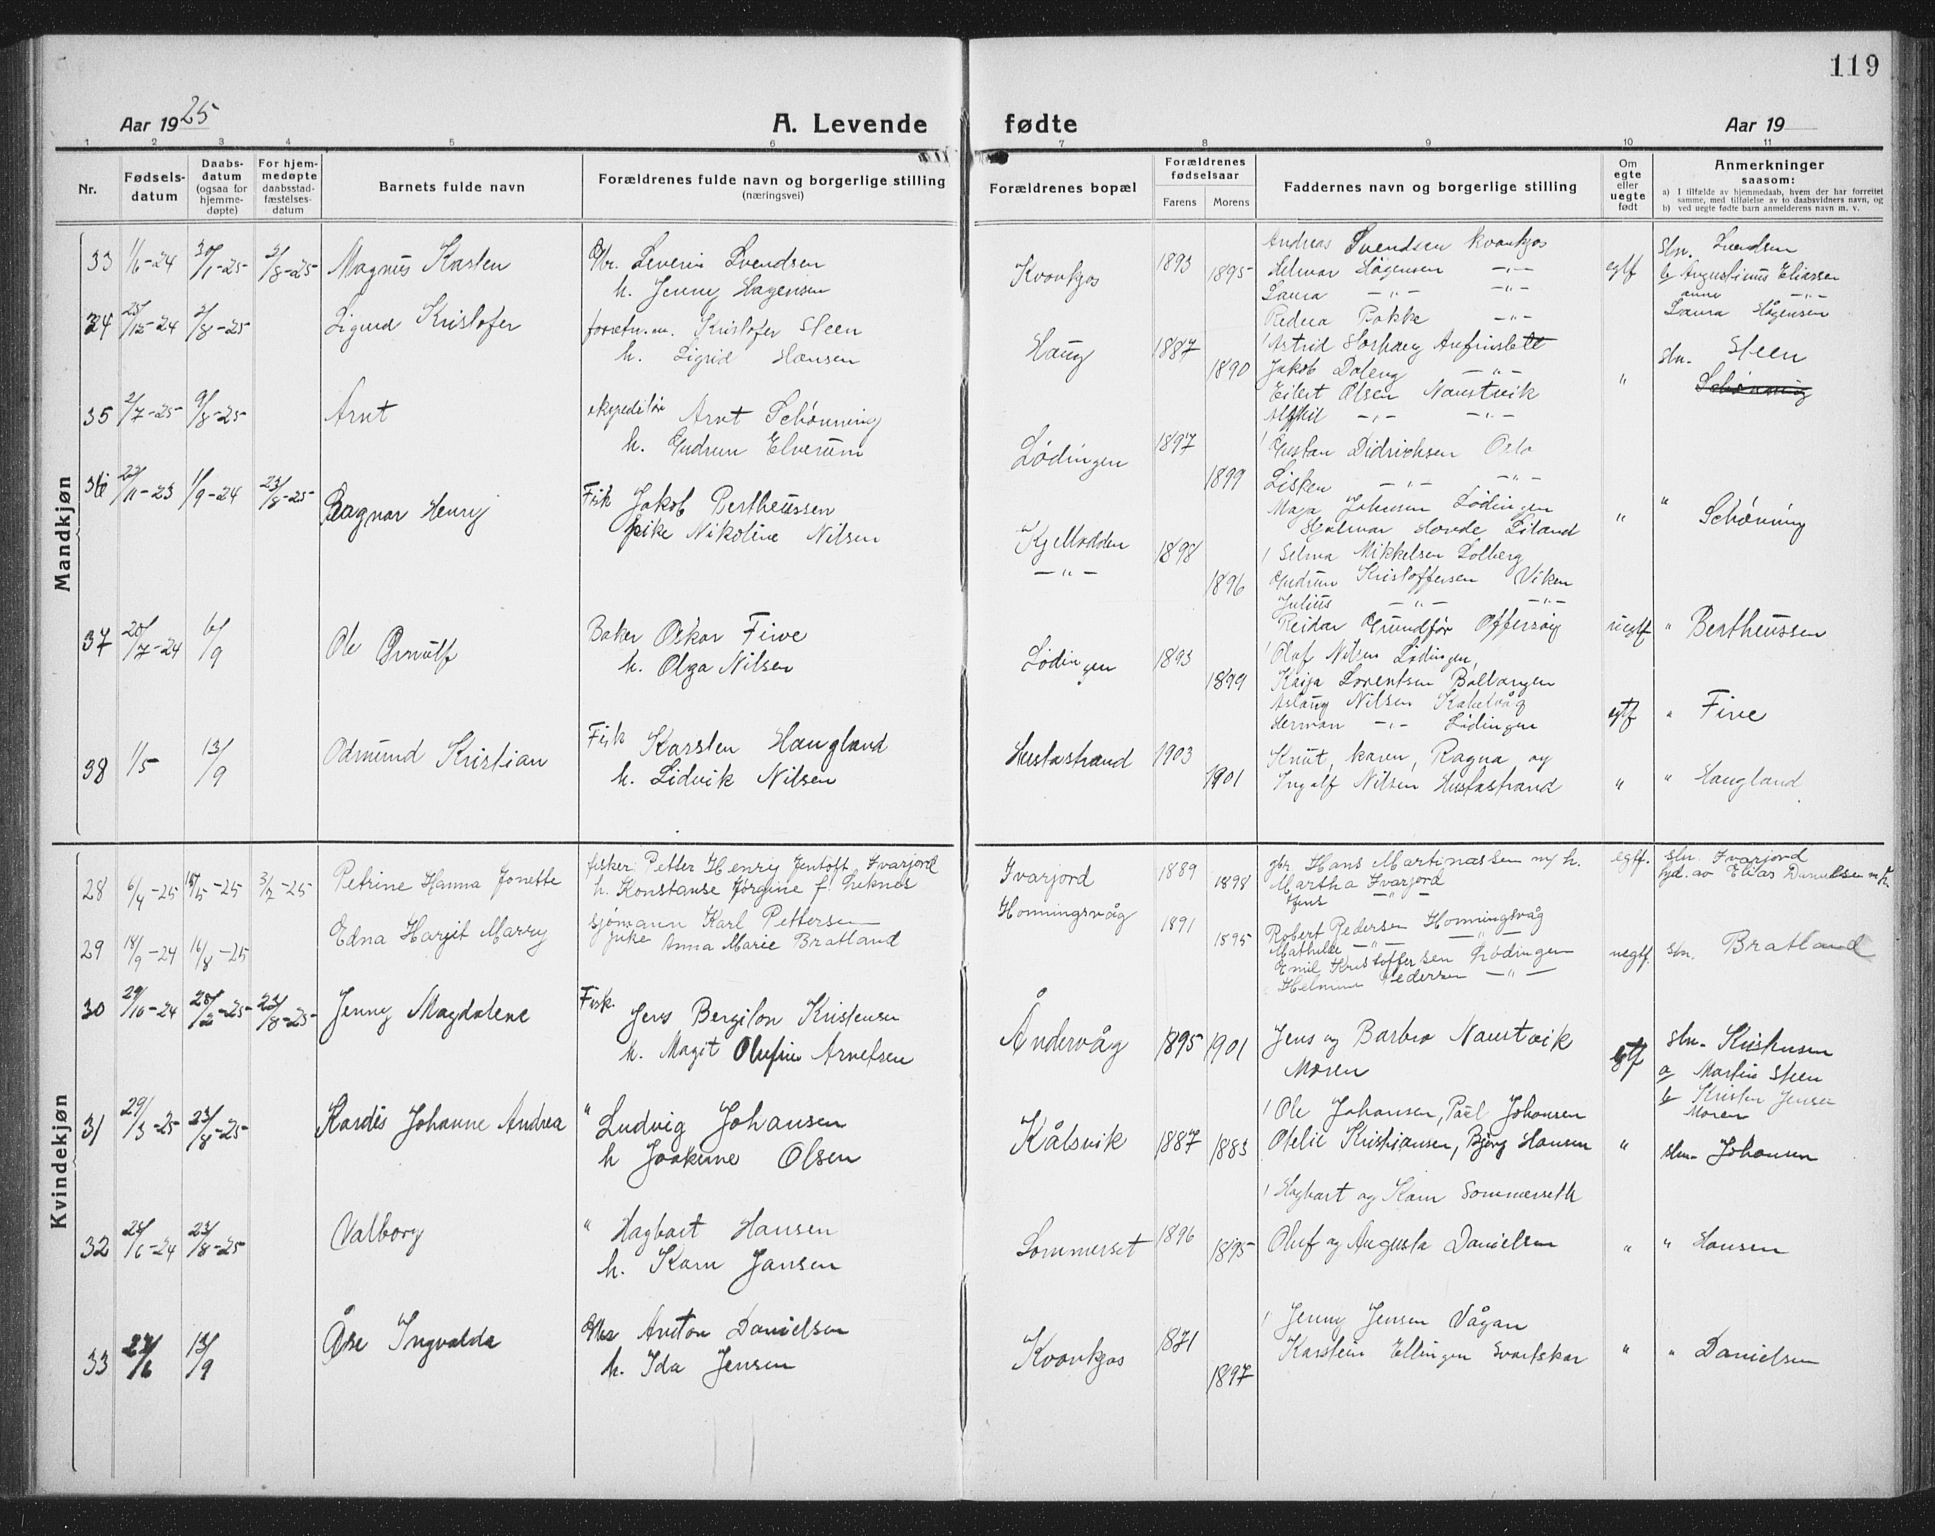 119
Aar 1925
A. Levende fødte
Aar 19
1 2 3 4 5 6 7 8 9 10 11
Nr.
Fødsels-
datum
Daabs-
datum
(ogsaa for
hjemme-
døpte)
For hjem-
medøpte
daabsstad-
fæstelses-
datum
Barnets fulde navn
Forældrenes fulde navn og borgerlige stilling
(næringsvei)
Forældrenes bopæl
Forældrenes
fødselsaar
Farens
Morens
Faddernes navn og borgerlige stilling
Om
egte
eller
uegte
født
Anmerkninger
saasom:
a) I tilfælde av hjemmedaab, hvem der har forrettet
samme, med tilføielse av to daabsvidners navn, og
b) ved uegte fødte barn anmelderens navn m. v.
Mandkjøn
33 1/6-24 30/1-25 2/8-25 Magnus Karsten
Gbr. Severin Svendsen
h. Jenny Hagensen
Kvankjos 1893 1895
Andreas Svendsen Kvankjos
Helmar Hagensen -"-
Laura -"- -"-
Bakke -"-
egtf
Svendsen
b Augustinus Eliassen
Laura Hagensen
34 25/12-24 2/8-25 Sigurd Kristofer
forretn.m. Kristofer Steen
h. Sigrid Hansen
Haug 1887 1890
Astrid
Jakob -"-
Eilert Olsen Naustvik
-"- -"-
" Steen
Schønning
35 2/7-25 9/8-25 Arnt
ekspeditør Arnt Schønning
h. Gudrun Elverum
Lødingen 1897 1899
Gustav Didrichsen Oslo
Lisken -"- -"-
Maja Johnsen Lødingen
Hjalmar Hovde Liland
" " Schønning
36 22/11-23 1/9-24 23/8-25 Ragnar Henry
Fisk Jakob Bertheussen
pike Nikoline Nilsen
Kjemodden 1898
-"- 1896
Selma Mikkelsen Solberg
Gudrun Kristoffersen Viken
Julius -"- -"-
Reidar Grundfør Offersøy
uegtf " Bertheussen
37 20/7-24 6/9 Ole Ørnulf
Baker Oskar Five
h. Olga Nilsen
Lødingen 1893 1899
Olaf Nilsen Lødingen,
Kaija Lorentsen Ballangen
Aslaug Nilsen Kabelvåg
Herman -"- Lødingen
egtf " Five
38 1/5 13/9 Odmund Kristian
Fisk Karsten Haugland
h. Lidvik Nilsen
Hustastrand 1903 1901
Knut, Karen, Ragna og
Ingolf Nilsen Hustastrand
" " Haugland
Kvindekjøn
28 6/4-25 15-25 3/7-25 Petrine Hanna Jonette
fisker Petter Henry Jentoft Ivarjord
h. Konstanse Jørgine f.
Ivarjord 1889 1898
gbr Hans Martinassen m/ h.
Martha Ivarjord
Jens -"-
egtf. sln. Ivarjord
29 18/9-24 16/8-25 Edna Harjit Marry
sjømann Karl Pettersen
Anna Marie Bratland
Honningsvåg 1891 1895
Robert Pedersen Honningsvåg
Mathilde -"- -"-
Emil Kristoffersen Lødingen
Pedersen -"-
uegtf. sln. Bratland
30 29/10-24 28/2-25 23/8-25 Jenny Magdalene
Fisk. Jens Bergiton Kristensen
h. Magit Olufine Arnetsen
Åndervåg 1895 1901
Jens og Barbro Naustvik
Moren
egtf sln. Kristensen
a Martin Steen
b Kristen Jensen
Moren
31 29/3-25 23/8-25 Kardis Johanne Andrea
" Ludvig Johansen
h Joakime Olsen
Kålsvik 1887 1883
Ole Johansen, Paul Johansen
Otelie Kristiansen, Bjørg Hansen
" sln. Johansen
32 25/6-24 23/8-25 Valborg
" Hagbart Hansen
h. Karn Jansen
Sommerset 1896 1895
Hagbart og Karn Sommerseth
Oluf og Augusta Danielsen
" " Hansen
33 27/6 13/9 Åse Ingvalda
Gbr Anton Danielsen
h. Ida Jensen
Kvankjos 1871 1897
Jenny Jensen Vågan
Karstein Ellingen Svartskar
" " Danielsen